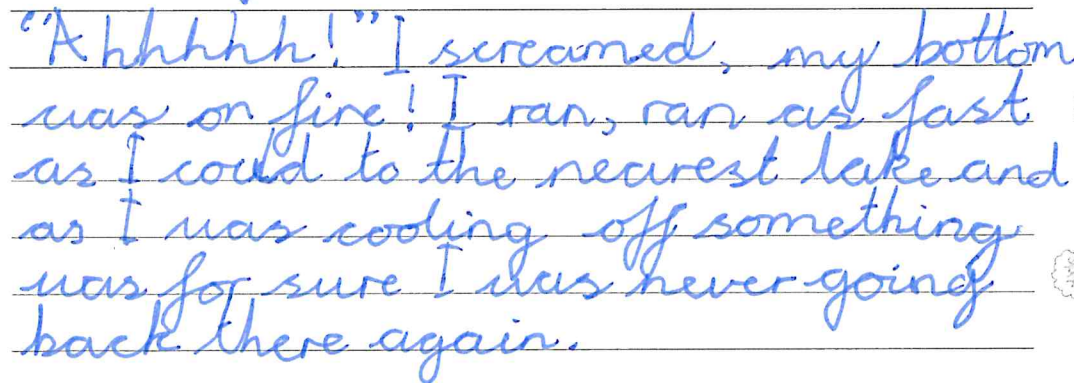 "Ahhhhh!" I screamed, my bottom
was on fire! I ran, ran as fast
as I could to the nearest lake and
as I was cooling off something
was for sure I was never going
back there again.